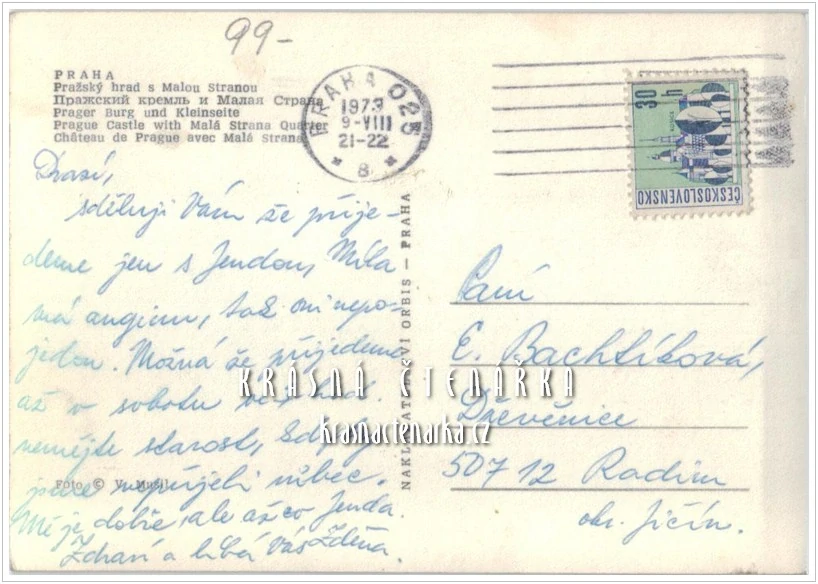 99-
PRAHA
Pražský hrad s Malou Stranou
Пражский кремль и Малая Страна
Prager Burg und Kleinseite
Prague Castle with Malá Strana Quarter
Château de Prague avec Malá Strana
PRAHA 025
1973
9-VIII
21-22
* 8 *
30 h
ČESKOSLOVENSKO
Drazí,
sděluji Vám že přije-
deme jen s Jendou, Míla
má anginu, tak oni nepo-
jedou. Možná že přijedeme
až v sobotu
nemějte starost, kdyby
jsme nepřijeli vůbec.
Mě je dobře, ale až co Jenda.
Zdraví a líbá Vás Zdena.
Foto © V. Musil
NAKLADATELSTVÍ ORBIS – PRAHA
Paní
E. Bachtíková,
Dřevěnice
507 12 Radim
okr. Jičín.
KRÁSNÁ ČTENÁŘKA
krasnactenarka.cz